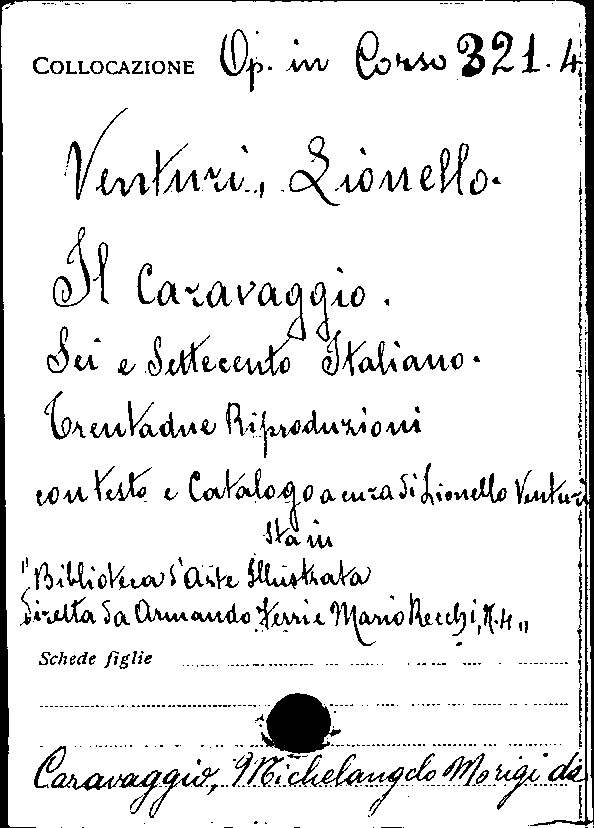 COLLOCAZIONE Op. in Corso 321.4
Venturi, Lionello.
Il Caravaggio.
Sei e Settecento Italiano.
Trentadue Riproduzioni
con testo e Catalogo a cura di Lionello Venturi
Sta in
"Biblioteca d'Arte Illustrata
diretta da Armando Ferri e Mario Recchi, N.4"
Schede figlie
Caravaggio, Michelangelo Morigi da